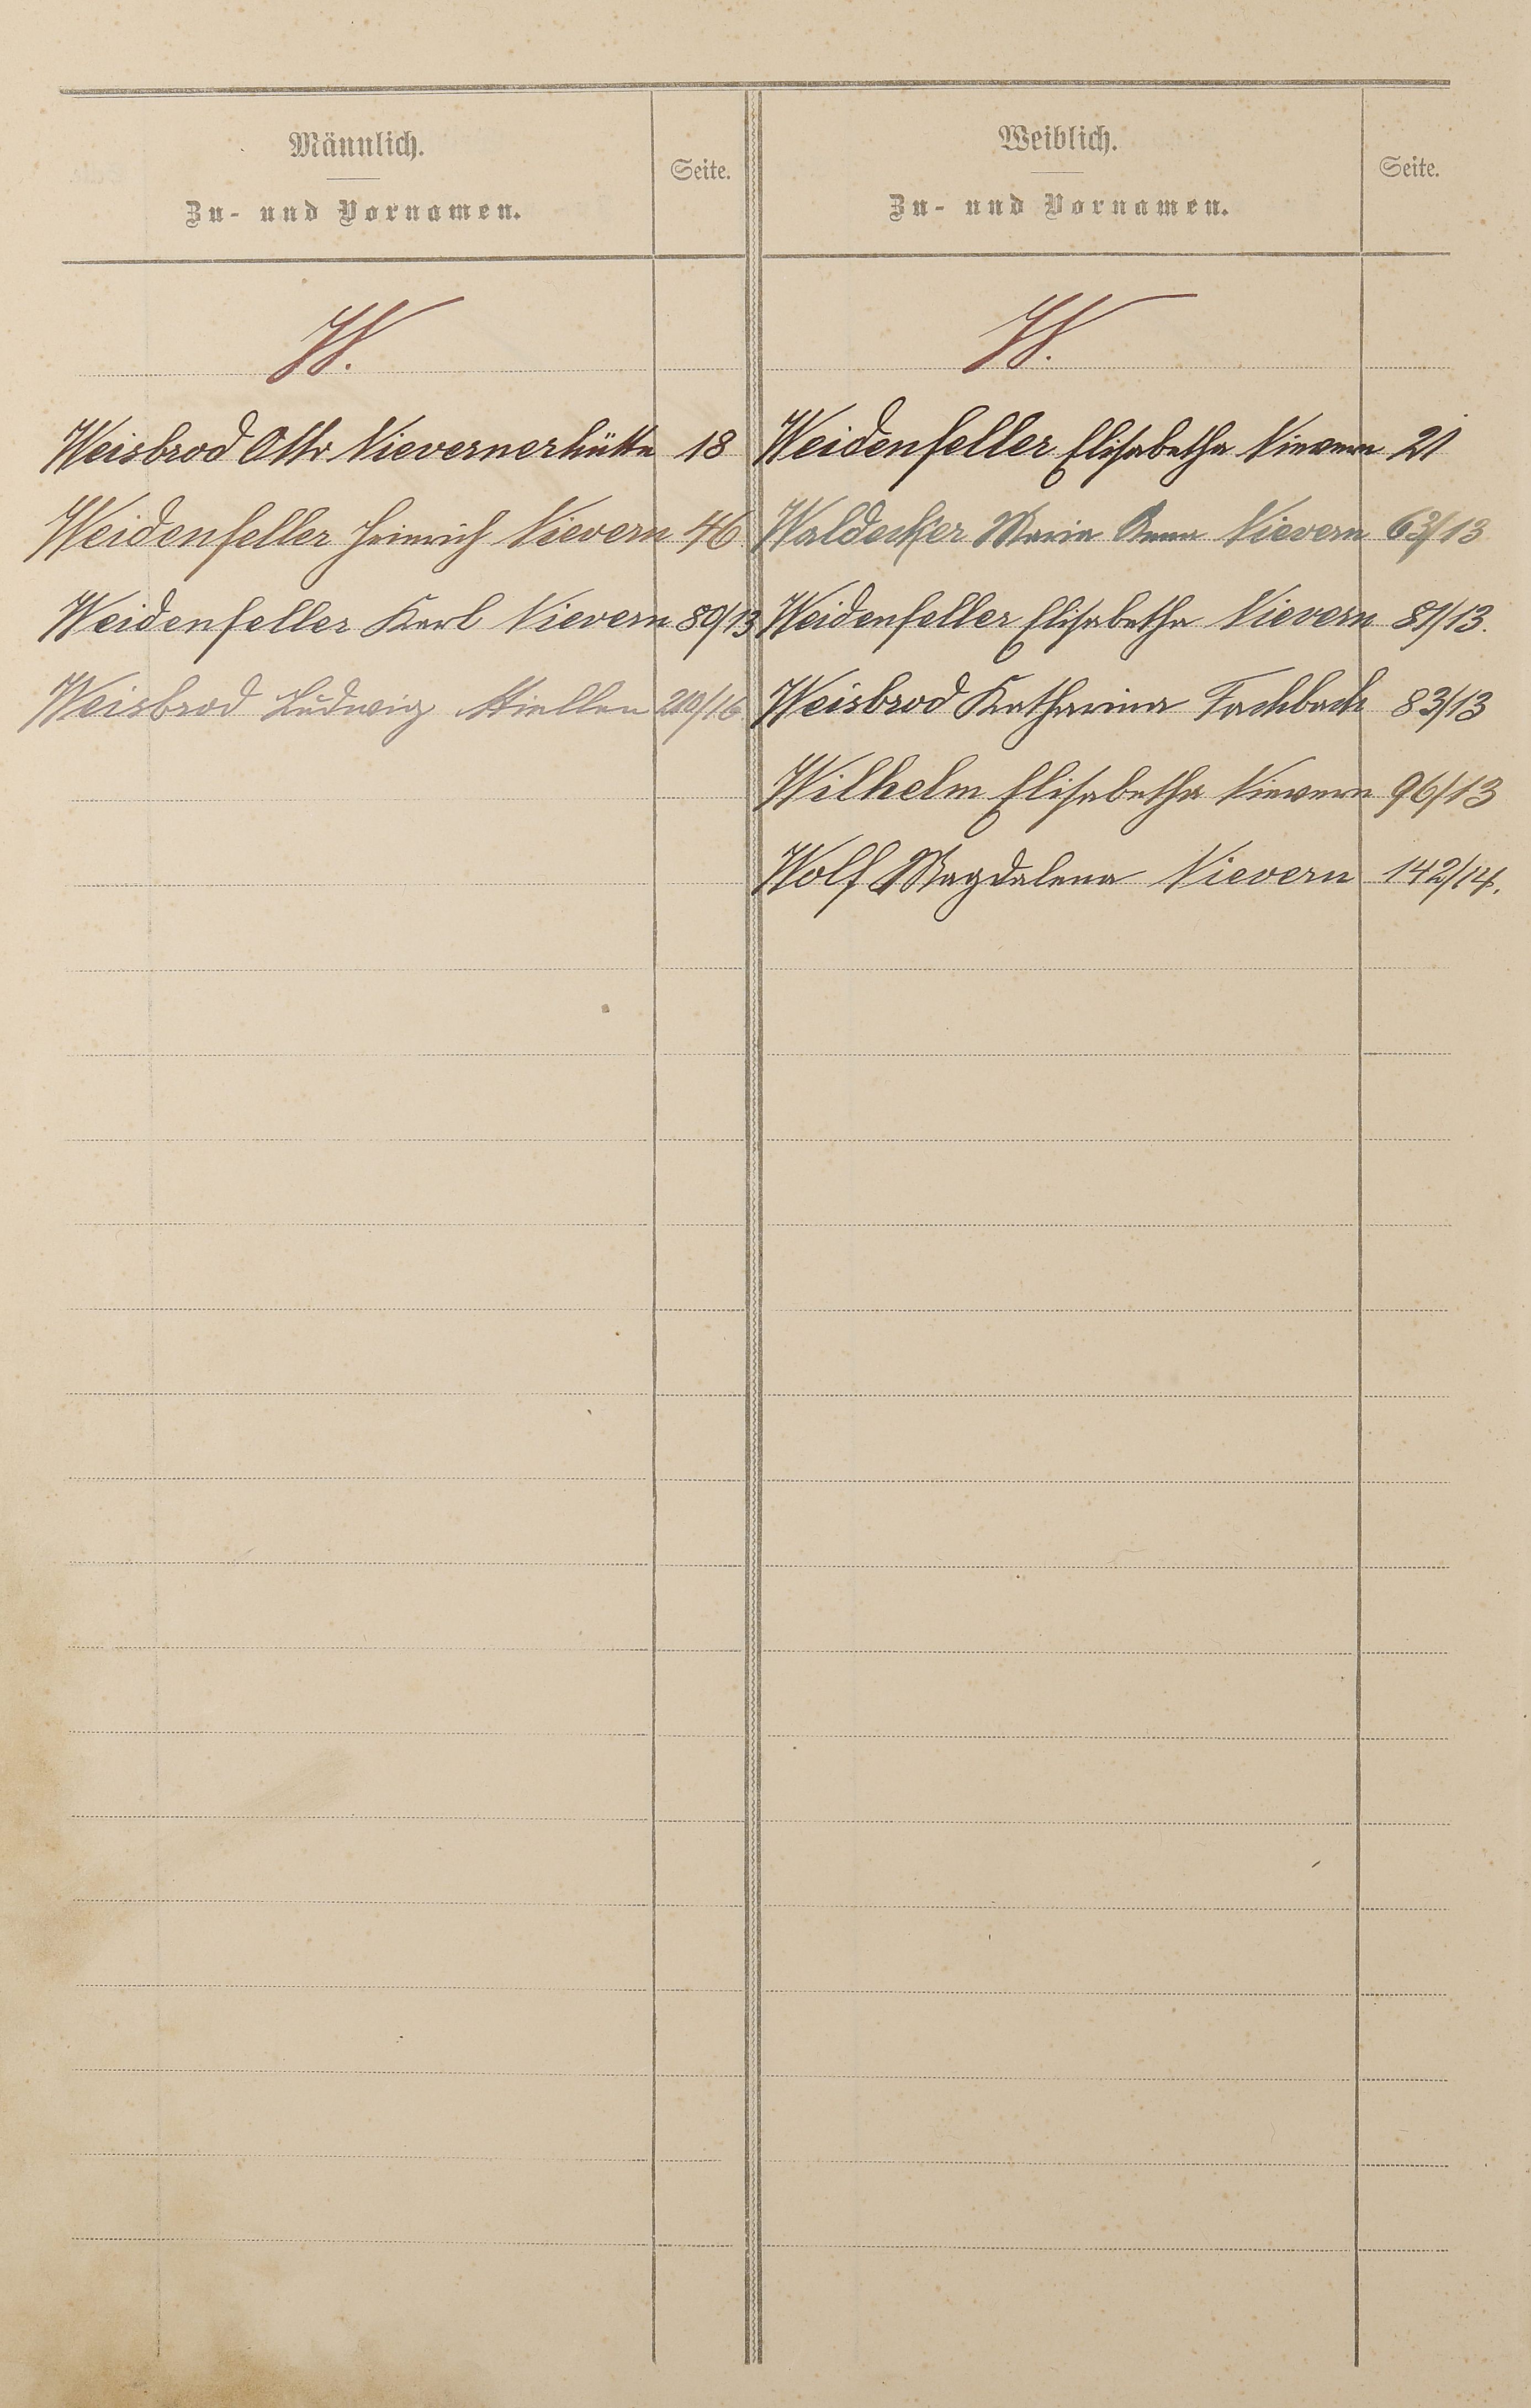 Männlich.
Zu- und Vornamen.
Seite.
W.
Weisbrod Otto Nievernerhütte 18
Weidenfeller Heinrich Nievern 46
Weidenfeller Karl Nievern 80/13
Weisbrod Ludwig Miellen 210/16
Weiblich.
Zu- und Vornamen.
Seite.
W.
Weidenfeller Elisabetha Nievern 21
Waldecker Maria Anna Nievern 63/13
Weidenfeller Elisabetha Nievern 81/13.
Weisbrod Katharina Fachbach 83/13
Wilhelm Elisabetha Nievern 96/13
Wolf Magdalena Nievern 142/14.